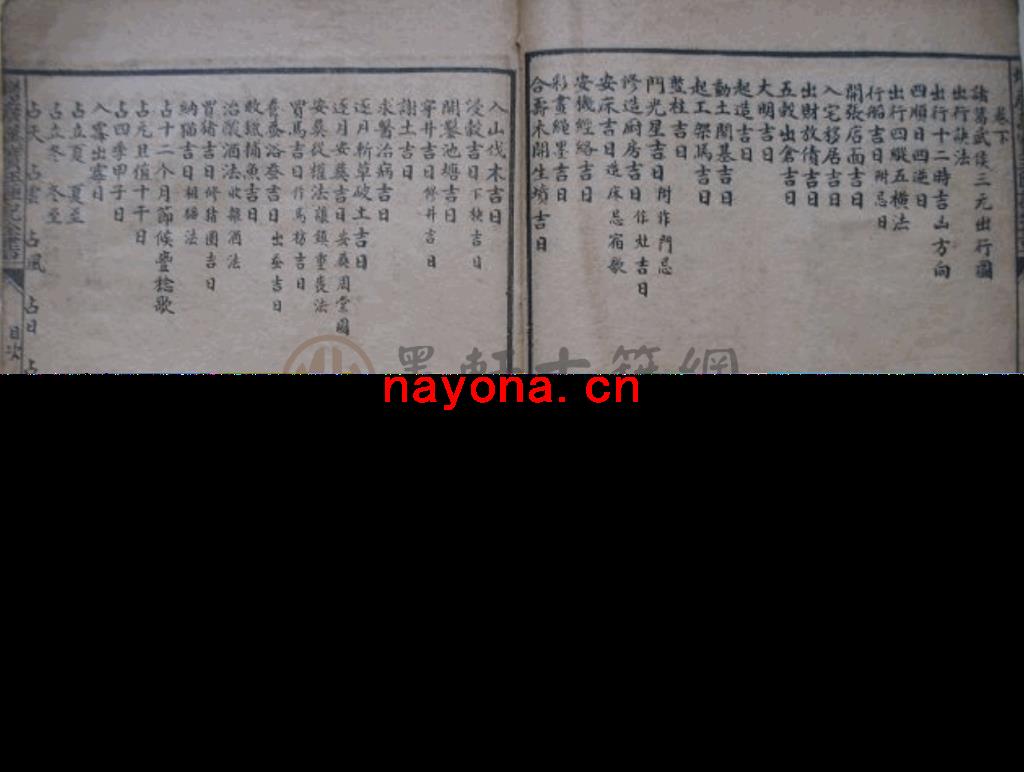 卷下
諸葛武侯三元出行圖
出行訣法
出行十二時吉山方向
四順日四逆日
出行四縱五橫法
行船吉日附忌日
開張店面吉日
入宅移居吉日
出財放債吉日
五穀出倉吉日
大明吉日
起造吉日
動土開基吉日
起工架馬吉日
竪柱吉日
門光星吉日附作門忌
修造廚房吉日作灶吉日
安床吉日造床忌宿歌
安機經絡吉日
彩畫繩墨吉日
合壽木開生墳吉日
入山伐木吉日
浸穀吉日下秧吉日
開鑿池塘吉日
穿井吉日修井吉日
謝土吉日
求醫治病吉日
逐月斬草破土吉日
逐月安葬吉日安葬周堂圖
安葬從權法禳鎮重喪法
買馬吉日作馬枋吉日
養蠶浴蚕吉日出蚕吉日
畋獵捕魚吉日
治瀲酒法收雜酒法
買豬吉日修豬圈吉日
納貓吉日相貓法
占十二個月節候豊稔歌
占元旦值十干日
占四季甲子日
入霉出霉日
占立夏 夏至
占立冬 冬至
占天 占雲 占風 占日
目次
墨軒古籍網
nayona.cn